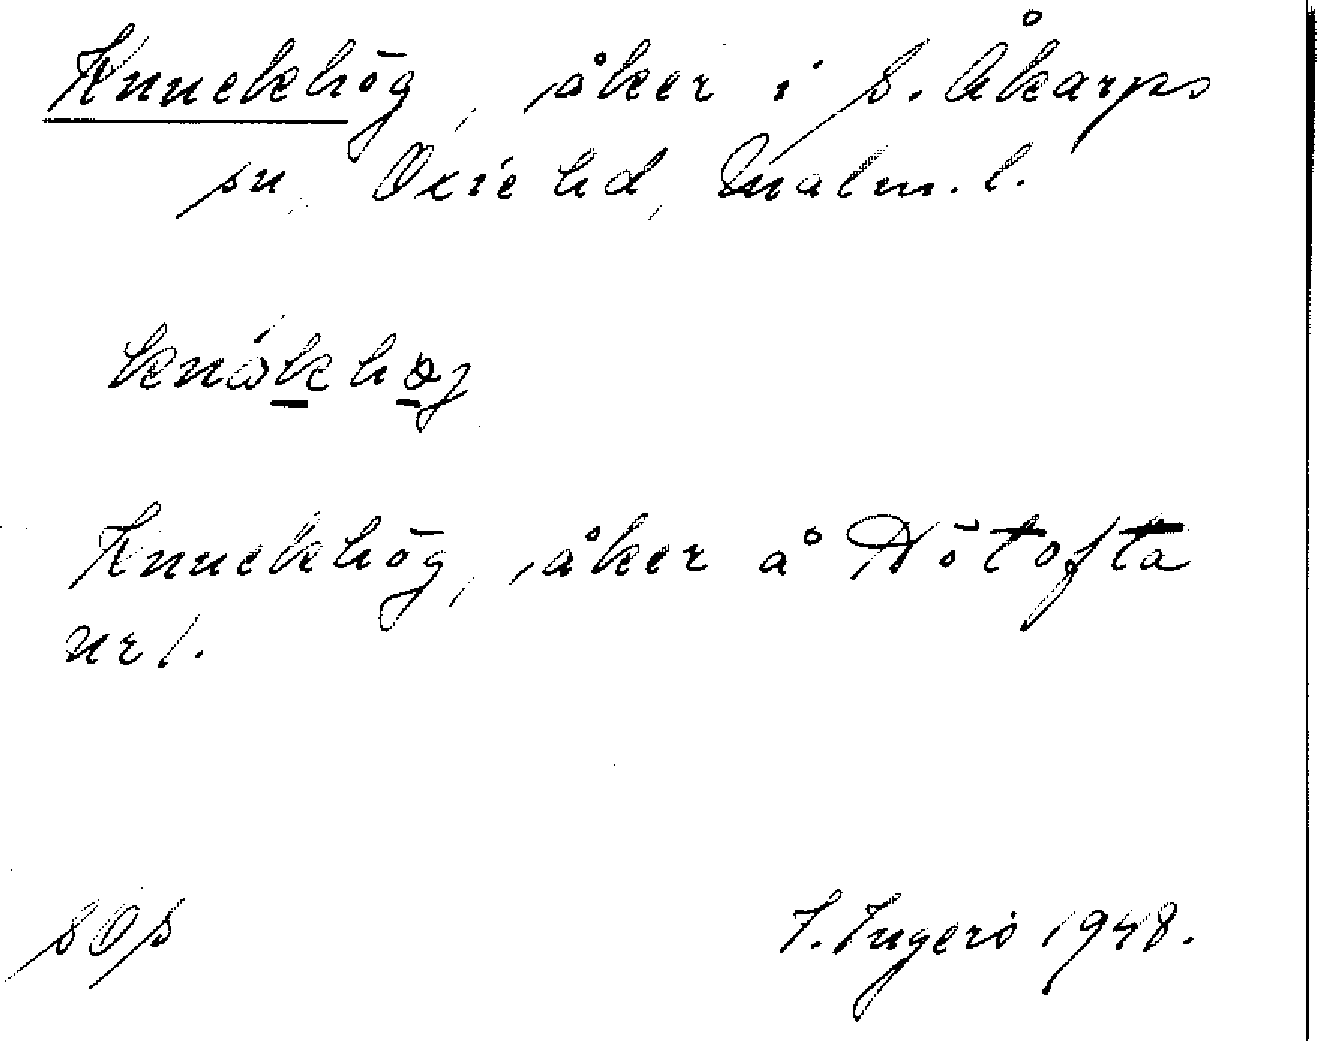 Knuckhög, åker i S. Åkarps
sn, Oxie hd, Malm. l.
knåkhøj
Knuckhög, åker å Dötofta
nr 1.
SOS
I. Ingers 1948.